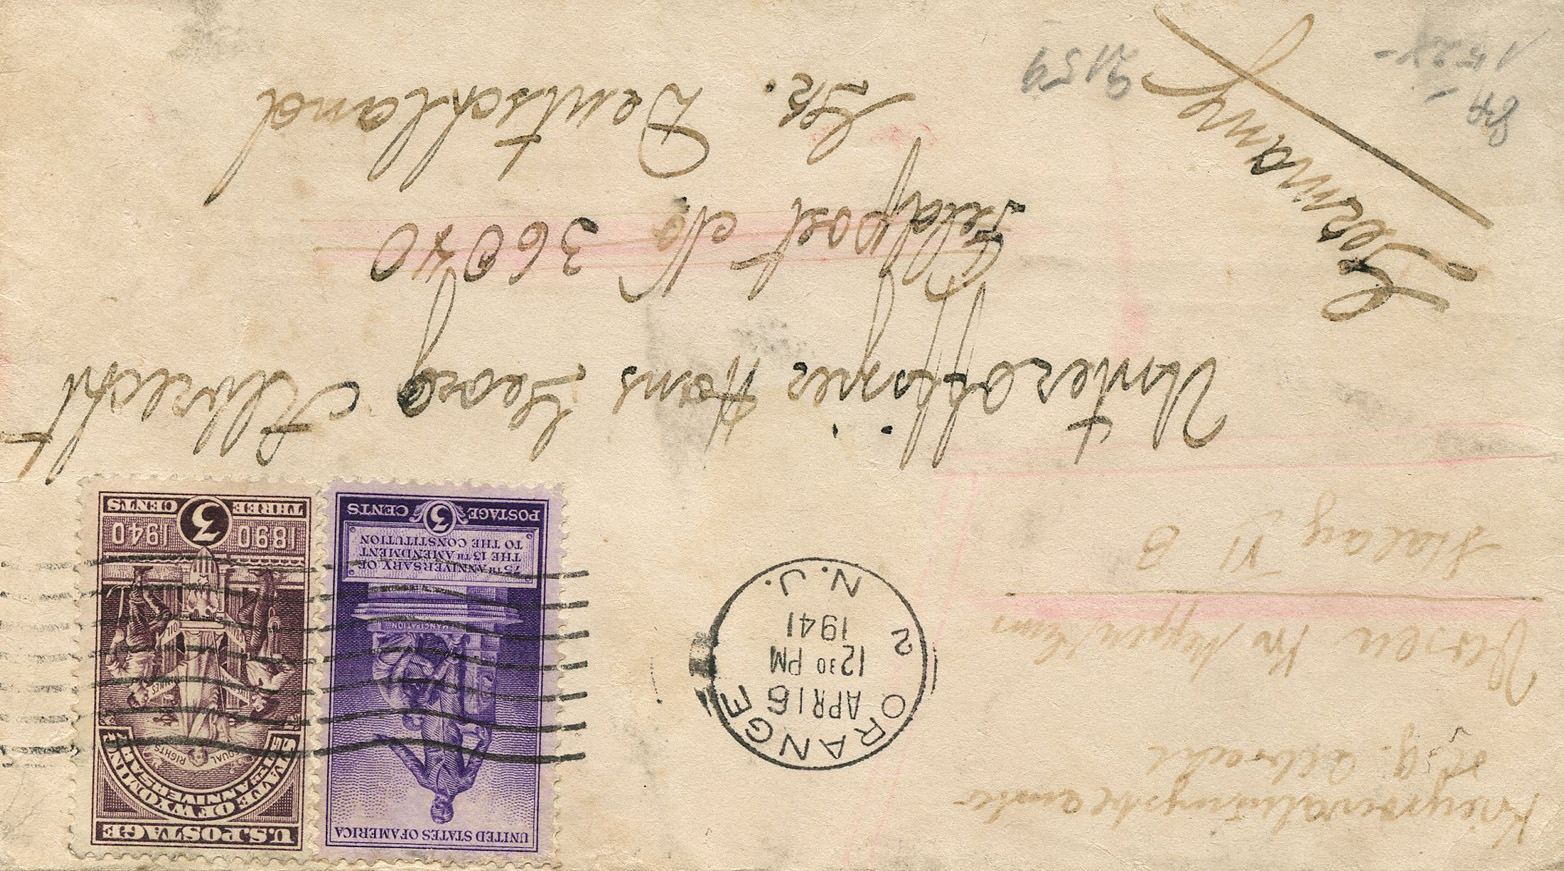 Kriegsverwaltungsbeamte
H. g. Albrecht
Versen Krs Meppen Ems
Stalag VI B
ORANGE
APR 16
12 30 PM
1941
N. J.
2
UNITED STATES OF AMERICA
EMANCIPATION
75TH ANNIVERSARY OF
THE 13TH AMENDMENT
TO THE CONSTITUTION
POSTAGE 3 CENTS
U.S. POSTAGE
STATE OF WYOMING
50TH ANNIVERSARY
EQUAL RIGHTS
1890 1940
THREE 3 CENTS
Unteroffizier Hans Georg Albrecht
Feldpost No 36040
Gr. Deutschland
Germany
2159